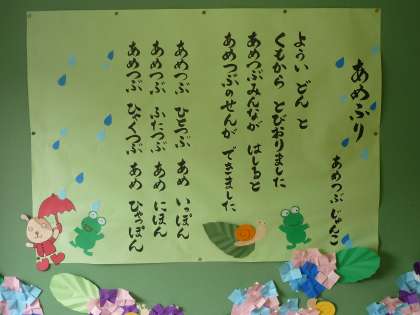 あめふり
あめつぶ じゅんこ
よういどん と
くもから とびおりました
あめつぶみんなが はしると
あめつぶのせんが できました
あめつぶ ひとつぶ あめ いっぽん
あめつぶ ふたつぶ あめ にほん
あめつぶ ひゃくつぶ あめ ひゃっぽん